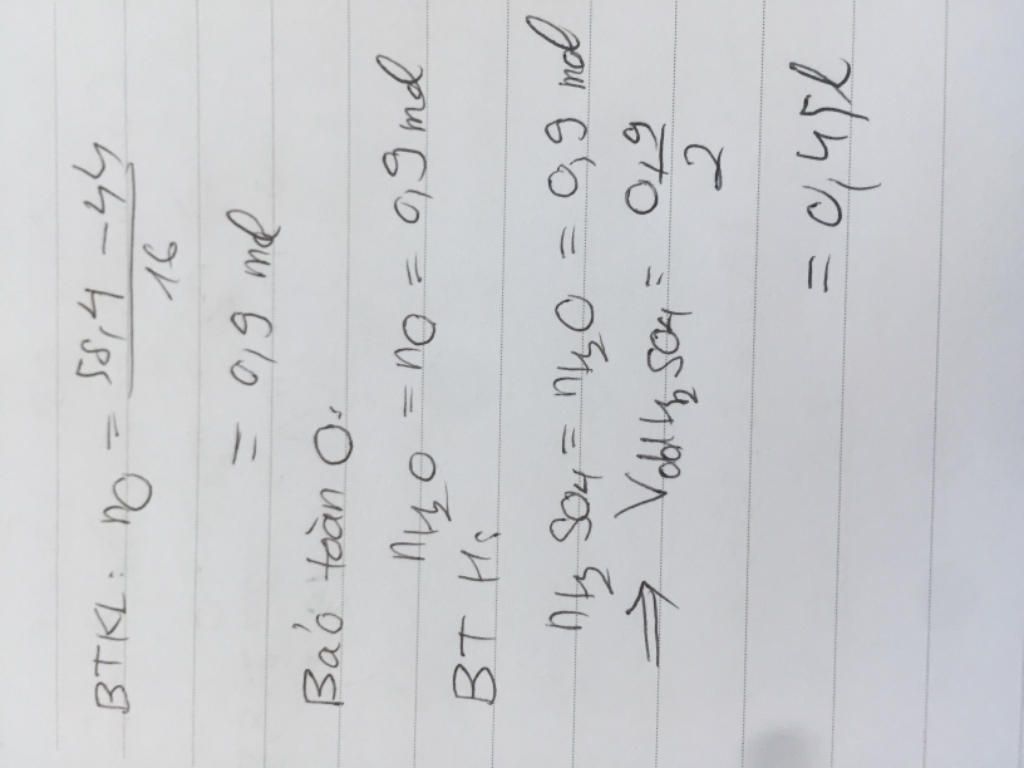 BTKL: nO = 58,4 - 44 / 16
= 0,9 mol
Bảo toàn O:
nH2O = nO = 0,9 mol
BT H:
nH2SO4 = nH2O = 0,9 mol
⇒ VddH2SO4 = 0,9 / 2
= 0,45l